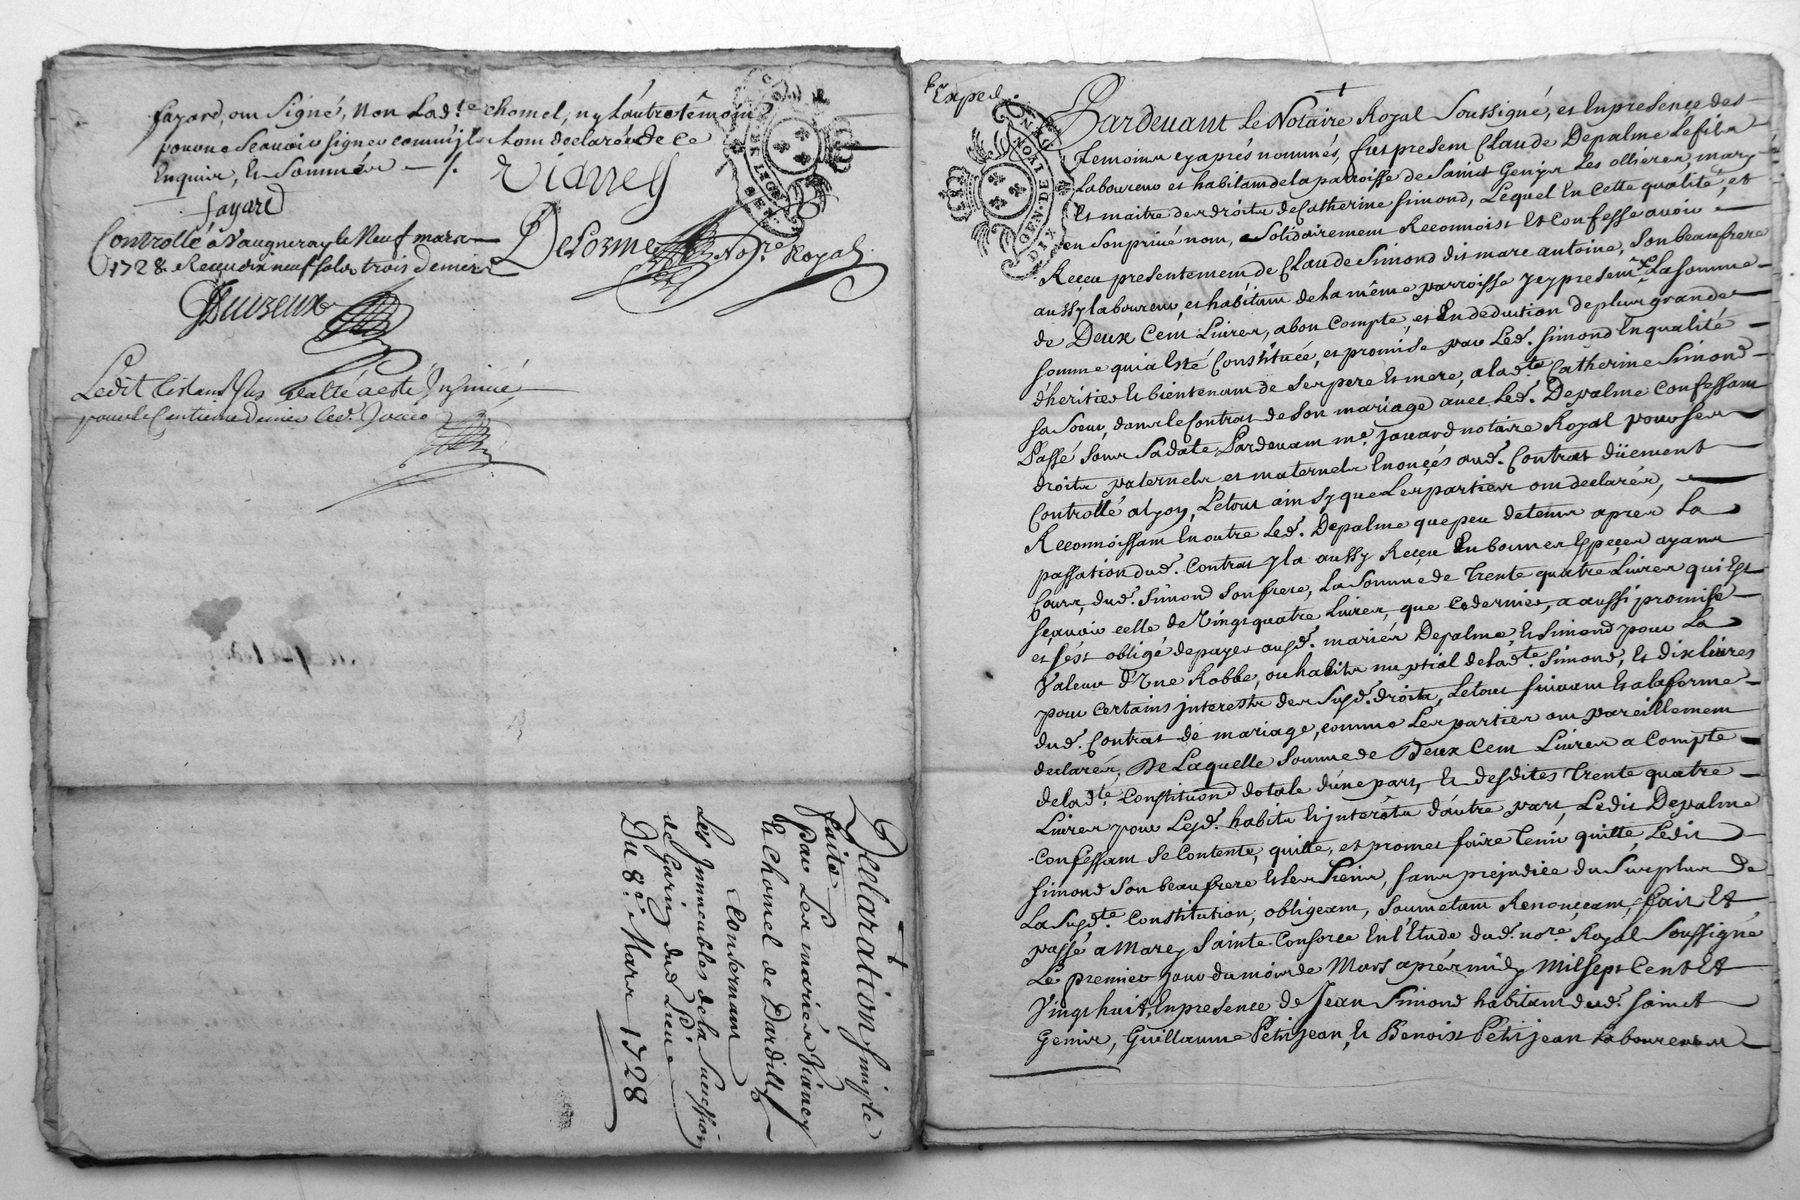 fayard, ont Signé, Non Lad.te chomel, ny L'autre témoin
pour ne Scavoir signer comm'ils hont declaré de ce
Enquis, et Sommés ./.
Vianney
fayard
DeLorme No.re Royal
Controllé à Vaugneray le Neuf mars
1728 Receu dix neuf sols trois deniers
Ledit
pour le Centieme denier led. Jour
Declaration Simple
faite
Par Les mariés Vianey
et Chomel de Dardilly
Consernant
Les Immeubles de la Succession
dud. Lieu
Du 8.e Mars 1728
Exped.
GEN. DE LYON
DIX DEN
Pardevant Le Notaire Royal Soussigné, et En presence des
Temoins cy après nommés, fut present Claude Depalme Le fils
Laboureur et habitant de la parroisse de Saint Genis Les ollieres, mary
Et maitre des droits de Catherine Simond, Lequel En cette qualité, et
en son privé nom, Solidairement Reconnoist Et Confesse avoir
Receu presentement de Claude Simond dit marc antoine, Son beaufrere
aussy laboureur, et habitant de la même parroisse Jcy present La Somme
de Deux Cent Livres, a bon Compte, et En deduction de plus grande
Somme qui a Esté Constituée, et promise par Led. Simond En qualité
d'héritier Et bientenant de Ses pere Et mere, a lad.te Catherine Simond
Sa Soeur, dans le Contrat de Son mariage avec Led. Depalme Confessant
Passé Sous Sa date Pardevant m.e Jouard notaire Royal pour Ses
droits paternels et maternels Enonçés aud. Contrat düement
Controllé a Lyon, Le tout ainsy que Les parties ont declarés,
Reconnoissant En outre Led. Depalme que peu de tems apres La
passation dud. Contrat Jl a aussy Receu En bonnes Espeçes ayant
Cours, dud. Simond Son frere, La Somme de Trente quatre Livres qui Est
Sçavoir celle de Vingt quatre Livres, que Ce dernier, a aussi promise
et s'est obligé de payer ausd. mariés Depalme, Et Simond pour La
Valeur d'Une Robbe, ou habits nuptial de lad.te Simond, Et dix livres
pour Certains jnterests des Susd. droits, Le tout Suivant Et a la forme
dud. Contrat de mariage, comme Les parties ont pareillement
declarés, De Laquelle Somme de Deux Cent Livres a Compte
de lad.te Constitution dotale d'une part, Et desdites Trente quatre
Livres pour Lesd. habits Et jnterêts d'autre part, Ledit Depalme
Confessant Se Contente, quitte, et promet faire Tenir quitte, Ledit
Simond Son beaufrere Et les Siens, Sans prejudice du Surplus de
La Susd.te Constitution, obligeant, Soumettant Renonçant, fait Et
passé a Marcy Sainte Consorce En L'Etude dud. no.re Royal Soussigné
Le premier jour du mois de Mars après midy Mil Sept Cent Et
Vingt huit, En presence de Jean Simond habitant dud. Saint
Genis, Guillaume Petitjean, Et Benoist Petitjean Laboureurs